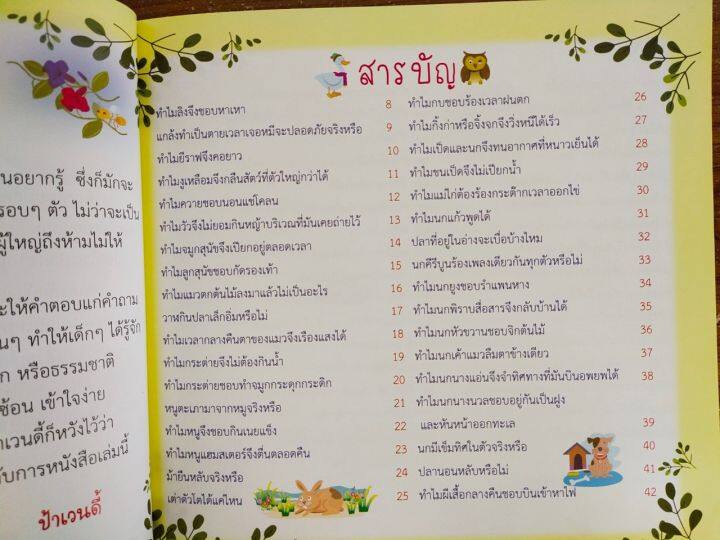 นอยากรู้ ซึ่งก็มักจะ
รอบๆ ตัว ไม่ว่าจะเป็น
ผู้ใหญ่ถึงห้ามไม่ให้
ะให้คำตอบแก่คำถาม
นๆ ทำให้เด็กๆ ได้รู้จัก
ก หรือธรรมชาติ
ซ้อน เข้าใจง่าย
าเวนดี้ก็หวังไว้ว่า
ับการหนังสือเล่มนี้
ป้าเวนดี้
สารบัญ
ทำไมลิงจึงชอบหาเหา 8
แกล้งทำเป็นตายเวลาเจอหมีจะปลอดภัยจริงหรือ 9
ทำไมยีราฟจึงคอยาว 10
ทำไมงูเหลือมจึงกลืนสัตว์ที่ตัวใหญ่กว่าได้ 11
ทำไมควายชอบนอนแช่โคลน 12
ทำไมวัวจึงไม่ยอมกินหญ้าบริเวณที่มันเคยถ่ายไว้ 13
ทำไมจมูกสุนัขจึงเปียกอยู่ตลอดเวลา 14
ทำไมลูกสุนัขชอบกัดรองเท้า 15
ทำไมแมวตกต้นไม้ลงมาแล้วไม่เป็นอะไร 16
วาฬกินปลาเล็กอิ่มหรือไม่ 17
ทำไมเวลากลางคืนตาของแมวจึงเรืองแสงได้ 18
ทำไมกระต่ายจึงไม่ต้องกินน้ำ 19
ทำไมกระต่ายชอบทำจมูกกระดุกกระดิก 20
หนูตะเภามาจากหมูจริงหรือ 21
ทำไมหนูจึงชอบกินเนยแข็ง 22
ทำไมหนูแฮมสเตอร์จึงตื่นตลอดคืน 23
ม้ายืนหลับจริงหรือ 24
เต่าตัวโตได้แค่ไหน 25
ทำไมกบชอบร้องเวลาฝนตก 26
ทำไมกิ้งก่าหรือจิ้งจกจึงวิ่งหนีได้เร็ว 27
ทำไมเป็ดและนกจึงทนอากาศที่หนาวเย็นได้ 28
ทำไมขนเป็ดจึงไม่เปียกน้ำ 29
ทำไมแม่ไก่ต้องร้องกระต๊ากเวลาออกไข่ 30
ทำไมนกแก้วพูดได้ 31
ปลาที่อยู่ในอ่างจะเบื่อบ้างไหม 32
นกคีรีบูนร้องเพลงเดียวกันทุกตัวหรือไม่ 33
ทำไมนกยูงชอบรำแพนหาง 34
ทำไมนกพิราบสื่อสารจึงกลับบ้านได้ 35
ทำไมนกหัวขวานชอบจิกต้นไม้ 36
ทำไมนกเค้าแมวลืมตาข้างเดียว 37
ทำไมนกนางแอ่นจึงจำทิศทางที่มันบินอพยพได้ 38
ทำไมนกนางนวลชอบอยู่กันเป็นฝูง
และหันหน้าออกทะเล 39
นกมีเข็มทิศในตัวจริงหรือ 40
ปลานอนหลับหรือไม่ 41
ทำไมผีเสื้อกลางคืนชอบบินเข้าหาไฟ 42